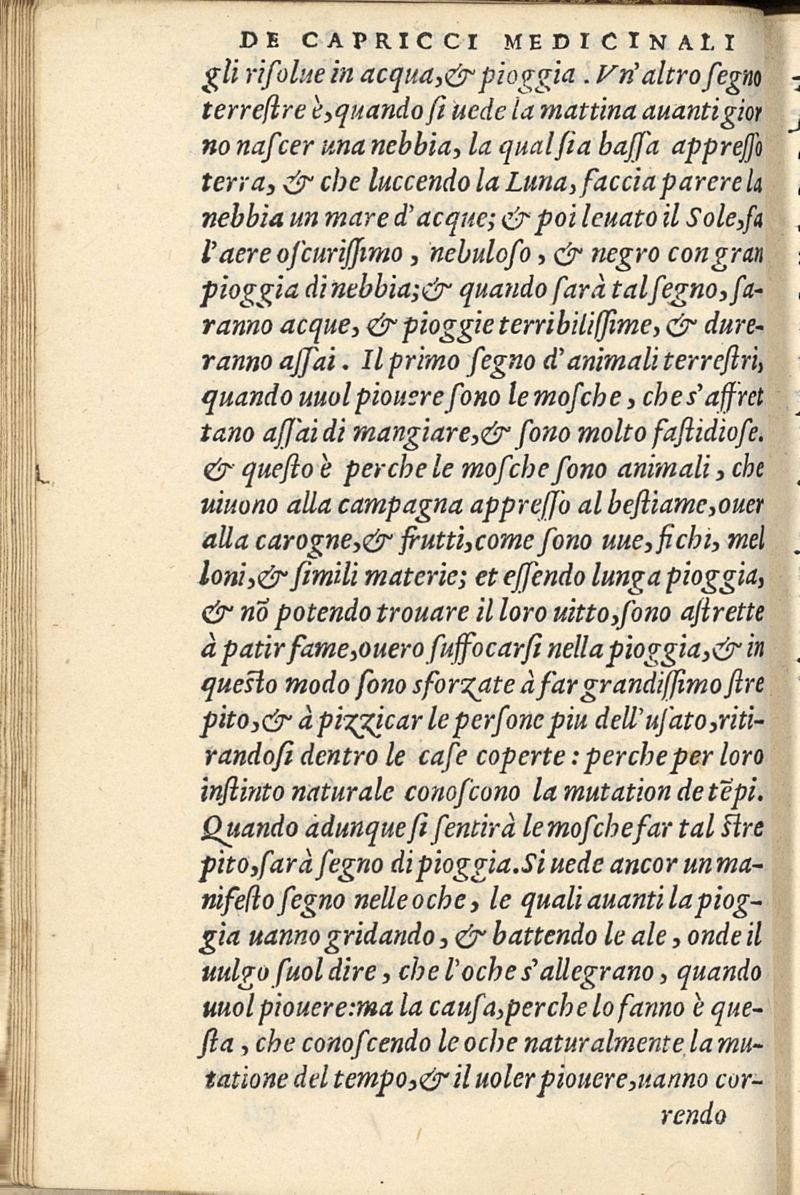 DE CAPRICCI MEDICINALI
gli riſolue in acqua,& pioggia . Vn' altro ſegno
terreſtre è,quando ſi uede la mattina auanti gior
no naſcer una nebbia, la qual ſia baſſa appreſſo
terra, & che luccendo la Luna, faccia parere la
nebbia un mare d' acque; & poi leuato il Sole,fa
l'aere oſcuriſſimo , nebuloſo , & negro con gran
pioggia di nebbia;& quando ſarà tal ſegno, ſa-
ranno acque, & pioggie terribiliſſime, & dure-
ranno aſſai . Il primo ſegno d' animali terreſtri,
quando uuol piouere ſono le moſche , che s' affret
tano aſſai di mangiare,& ſono molto faſtidioſe.
& queſto è perche le moſche ſono animali , che
uiuono alla campagna appreſſo al beſtiame,ouer
alla carogne,& frutti,come ſono uue, fichi, mel
loni,& ſimili materie; et eſſendo lunga pioggia,
& nō potendo trouare il loro uitto,ſono aſtrette
à patir fame,ouero ſuffocarſi nella pioggia,& in
queſto modo ſono sforzate à far grandiſſimo ſtre
pito,& à pizzicar le perſone piu dell' uſato,riti-
randoſi dentro le caſe coperte : perche per loro
inſtinto naturale conoſcono la mutation de tēpi.
Quando adunque ſi ſentirà le moſche far tal ſtre
pito,ſarà ſegno di pioggia. Si uede ancor un ma-
nifeſto ſegno nelle oche , le quali auanti la piog-
gia uanno gridando , & battendo le ale , onde il
uulgo ſuol dire , che l'oche s' allegrano , quando
uuol piouere:ma la cauſa,perche lo fanno è que-
ſta , che conoſcendo le oche naturalmente la mu-
tatione del tempo,& il uoler piouere,uanno cor-
rendo